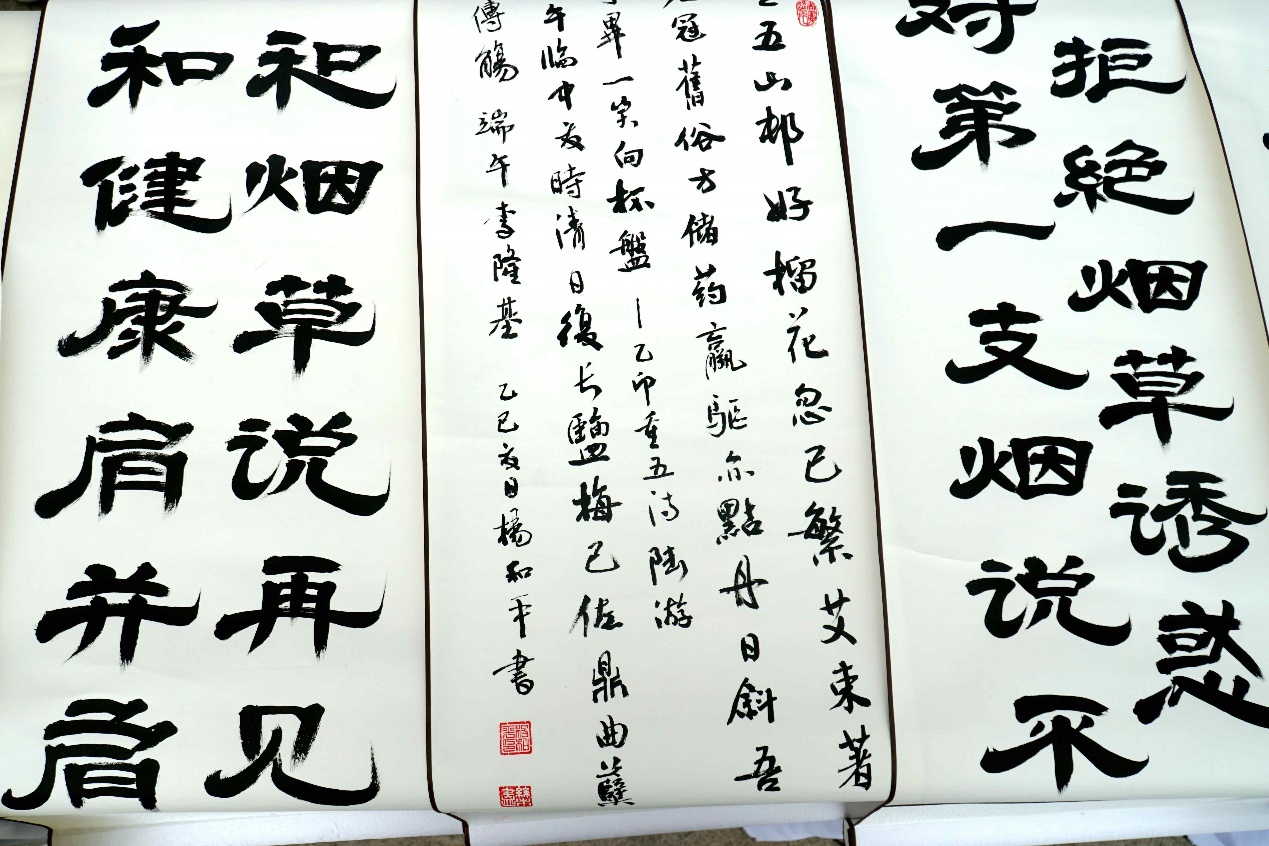 拒绝烟草诱惑
对第一支烟说不
五山邨好榴花忽已繁艾束著
冠舊俗方儲药羸驱亦點丹日斜吾
事畢一笑向杯盤 — 乙卯重五诗 陆游
午临中夏時清日復长鹽梅已佐鼎曲蘖
傳觴 端午 李隆基 乙巳夏日楊和平書
和烟草说再见
和健康肩并肩